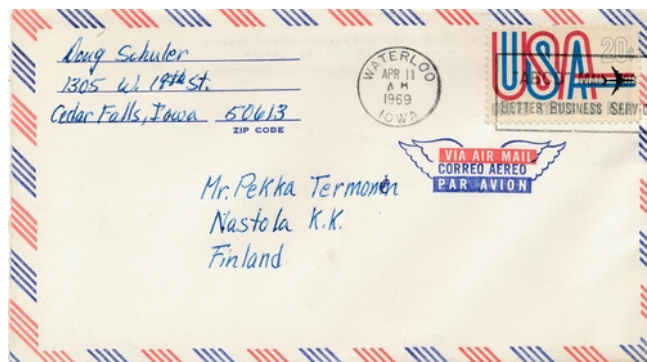 Doug Schuler
1305 W. 18th St.
Cedar Falls, Iowa 50613
ZIP CODE
WATERLOO
APR 11
AM
1969
IOWA
USA 20c
BETTER BUSINESS SERV
VIA AIR MAIL
CORREO AEREO
PAR AVION
Mr. Pekka Termonen
Nastola K.K.
Finland